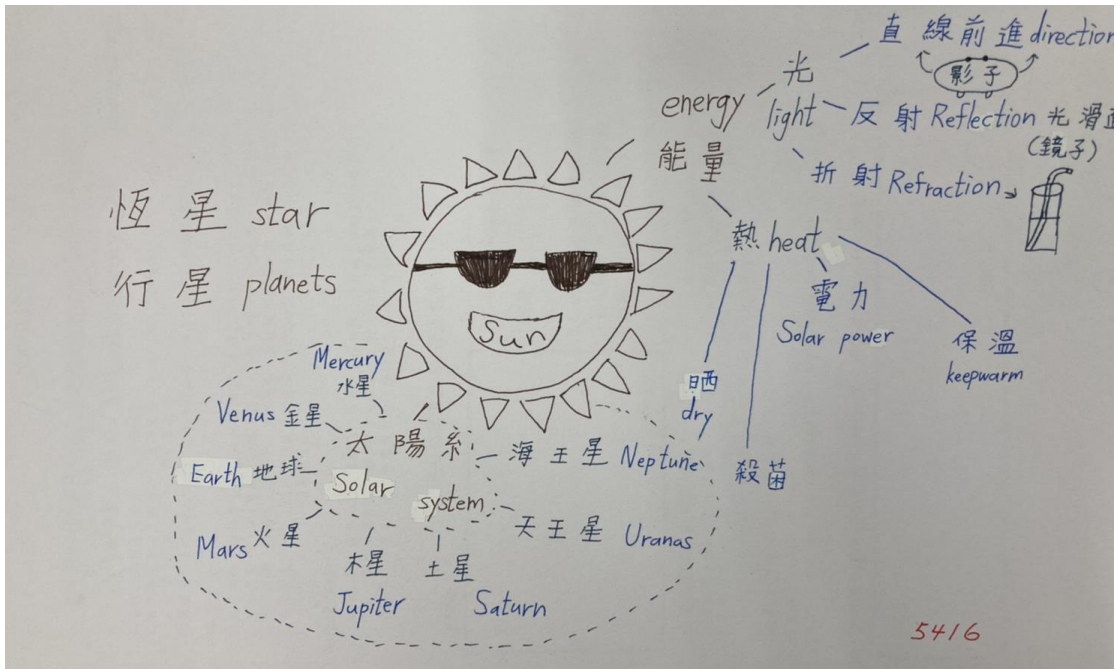 恆星 star
行星 planets
Sun
energy
能量
光
light
直線前進 direction
影子
反射 Reflection 光滑面
(鏡子)
折射 Refraction
熱 heat
電力
Solar power
保溫
keepwarm
晒
dry
殺菌
太陽系
Solar system
Mercury
水星
Venus 金星
Earth 地球
Mars 火星
木星
Jupiter
土星
Saturn
天王星 Uranas
海王星 Neptune
5416